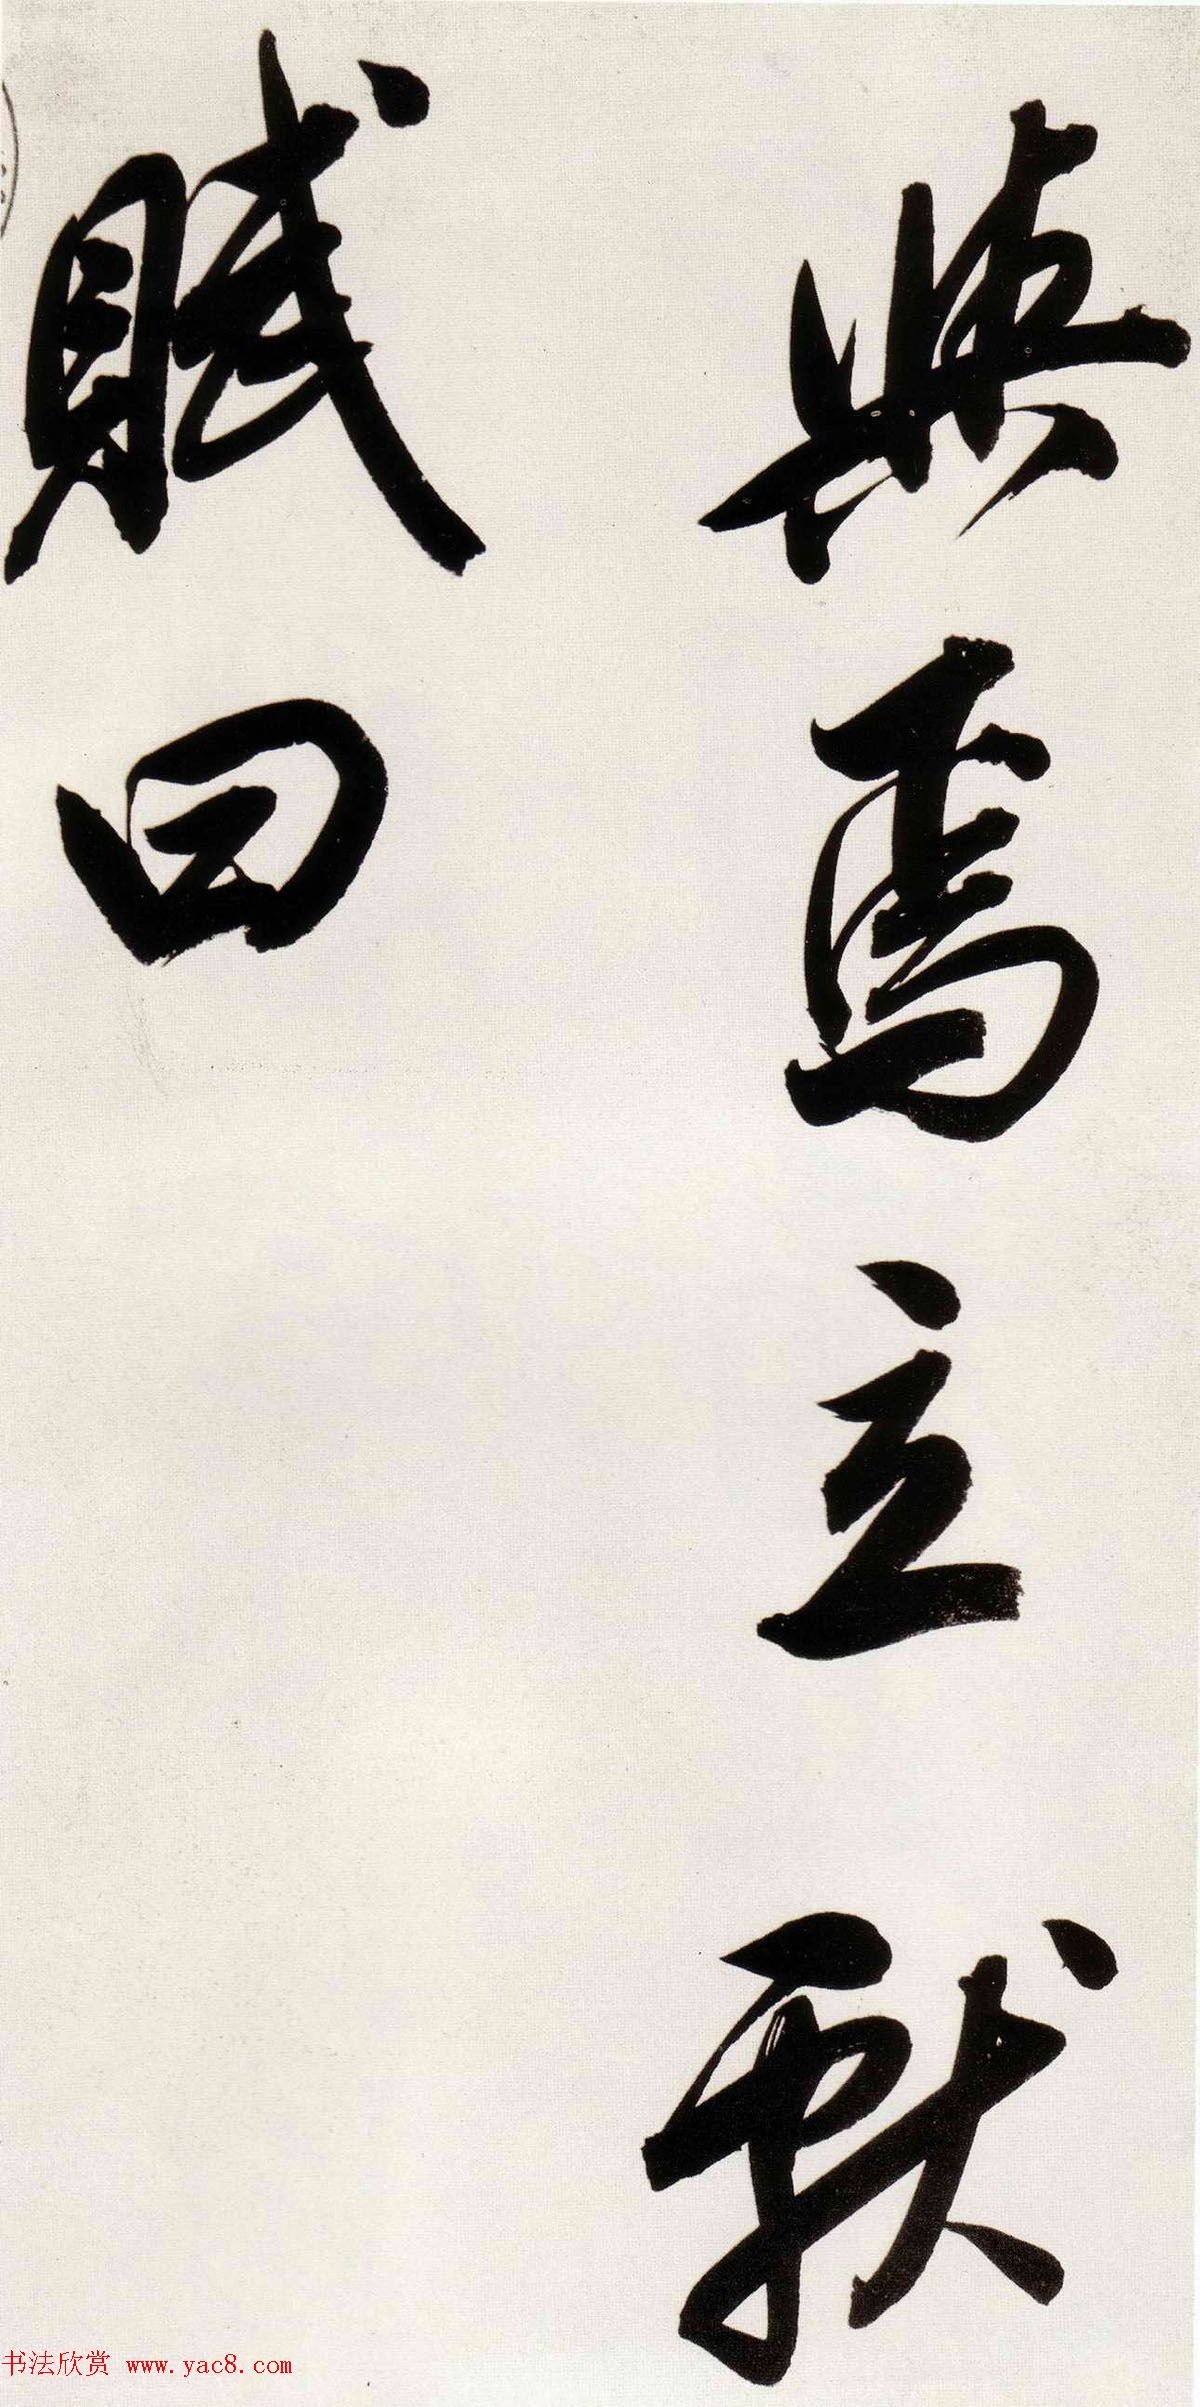 與焉立獻
賦曰
书法欣赏 www.yac8.com